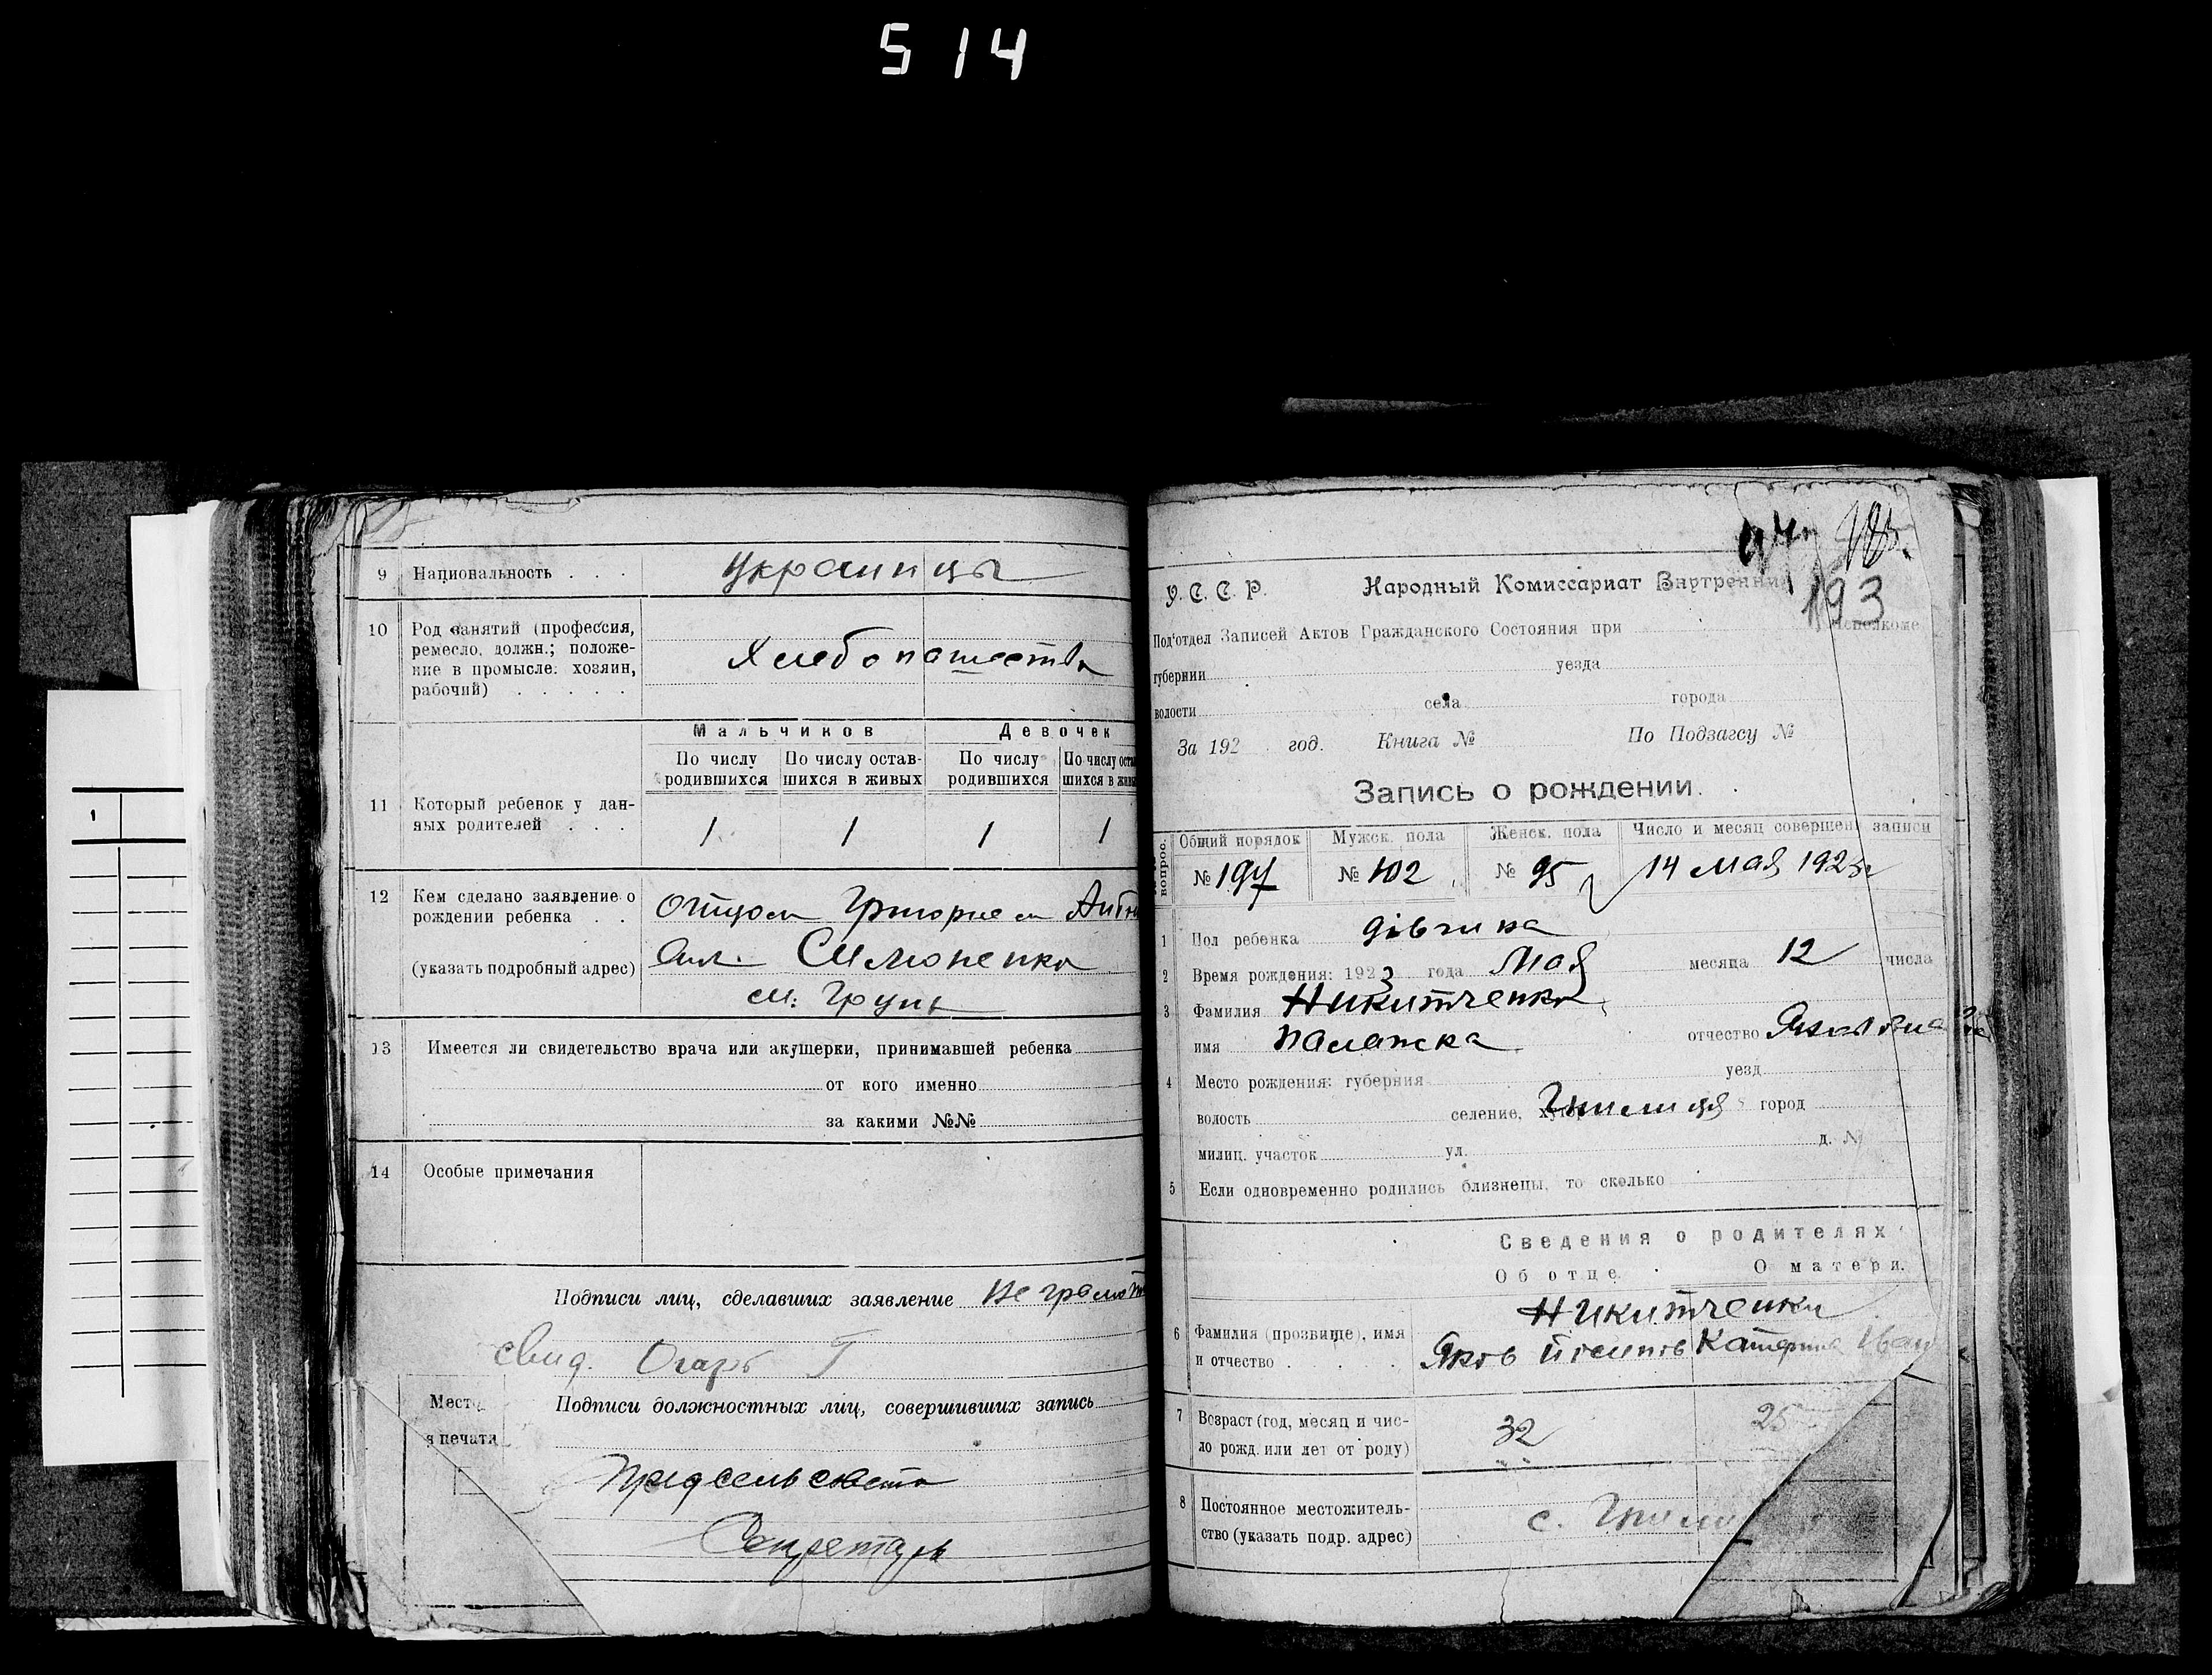 514
9 Национальность . . . Украинцы
10 Род занятий (профессия,
ремесло, должн.; положе-
ние в промысле: хозяин,
рабочий) . . . . .
Хлебопашество
Мальчиков Девочек
По числу родившихся По числу остав-шихся в живых По числу родившихся По числу оста шихся в живы
11 Который ребенок у дан-
ных родителей . . .
1 1 1 1
12 Кем сделано заявление о
рождении ребенка . .
отцом Григорием
(указать подробный адрес) Симоненко
м. Грунь
13 Имеется ли свидетельство врача или акушерки, принимавшей ребенка
от кого именно
за какими №№
14 Особые примечания
Подписи лиц, сделавших заявление Неграмот
свид. Огарь Г
Место
для печати
Подписи должностных лиц, совершивших запись
Предсельсовета
Секретарь
94
193
У. С. С. Р. Народный Комиссариат Внутренни
Под'отдел Записей Актов Гражданского Состояния при Исполкоме
губернии уезда
волости села города
За 192 год. Книга № По Подзагсу №
Запись о рождении.
вопрос. Общий порядок Мужск. пола Женск. пола Число и месяц совершен. записи
№ 197 № 102 № 95 14 мая 1923 г
1 Пол ребенка дівчика
2 Время рождения: 1923 года Мая месяца 12 числа
3 Фамилия Никитченко
имя Палажка отчество Якововна
4 Место рождения: губерния уезд
волость селение, Гнилиця город
милиц. участок ул. д. №
5 Если одновременно родились близнецы, то сколько
Сведения о родителях
Об отце. О матери.
Никитченки
6 Фамилия (прозвище), имя
и отчество . . . Яков Йосипов Катерина Иван
7 Возраст (год, месяц и чис-
ло рожд. или лет от роду) 32 25
8 Постоянное местожитель-
ство (указать подр. адрес) с. Гнили